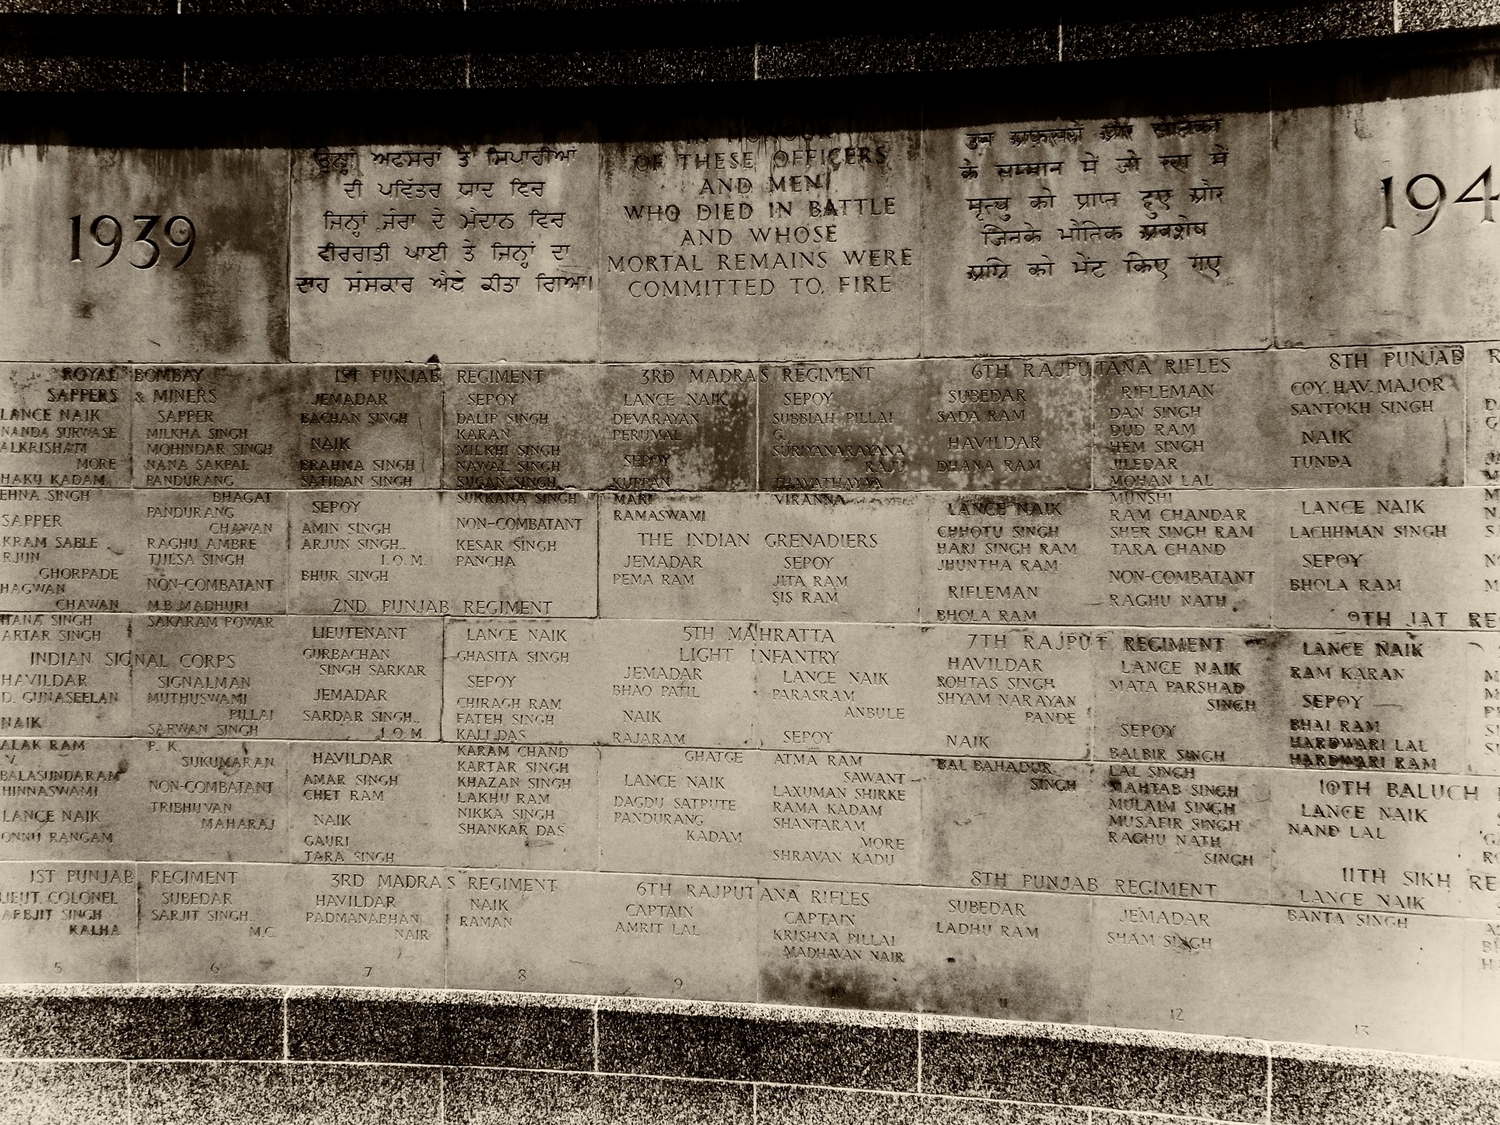 1939
ਉਨ੍ਹਾਂ ਅਫਸਰਾਂ ਤੇ ਸਿਪਾਹੀਆਂ
ਦੀ ਪਵਿੱਤਰ ਯਾਦ ਵਿਚ
ਜਿਨ੍ਹਾਂ ਜੰਗ ਦੇ ਮੈਦਾਨ ਵਿਚ
ਵੀਰਗਤੀ ਪਾਈ ਤੇ ਜਿਨ੍ਹਾਂ ਦਾ
ਦਾਹ ਸੰਸਕਾਰ ਐਥੇ ਕੀਤਾ ਗਿਆ।
IN HONOUR
OF THESE OFFICERS
AND MEN
WHO DIED IN BATTLE
AND WHOSE
MORTAL REMAINS WERE
COMMITTED TO FIRE
उन अफ़सरों और सैनिकों
के सम्मान में जो रण में
मृत्यु को प्राप्त हुए और
जिनके भौतिक अवशेष
अग्नि को भेंट किए गए
194
ROYAL BOMBAY
SAPPERS & MINERS
LANCE NAIK
NANDA SURWASE
ALKRISHAM
MORE
HAKU KADAM
EHNA SINGH
SAPPER
KRAM SABLE
RJUN
GHORPADE
HAGWAN
CHAWAN
HANA SINGH
ARTAR SINGH
SAPPER
MILKHA SINGH
MOHINDAR SINGH
NANA SAKPAL
PANDURANG
BHAGAT
PANDURANG
CHAWAN
RAGHU AMBRE
TULSA SINGH
NON-COMBATANT
M.B. MADHURI
SAKARAM POWAR
INDIAN SIGNAL CORPS
HAVILDAR
D. GUNASEELAN
NAIK
ALAK RAM
V.
BALASUNDARAM
HINNASWAMI
LANCE NAIK
ONNU RANGAM
SIGNALMAN
MUTHUSWAMI
PILLAI
SARWAN SINGH
P. K.
SUKUMARAN
NON-COMBATANT
TRIBHUVAN
MAHARAJ
1ST PUNJAB REGIMENT
LIEUT. COLONEL
ARBJIT SINGH
KALHA
SUBEDAR
SARJIT SINGH.
M.C.
5
6
1ST PUNJAB REGIMENT
JEMADAR
BACHAN SINGH
NAIK
BRAHMA SINGH
SATIDAN SINGH
SEPOY
AMIN SINGH
ARJUN SINGH.
I.O.M.
BHUR SINGH
SEPOY
DALIP SINGH
KARAN
MILKHI SINGH
NAWAL SINGH
SUGAN SINGH
SUKKANA SINGH
NON-COMBATANT
KESAR SINGH
PANCHA
2ND PUNJAB REGIMENT
LIEUTENANT
GURBACHAN
SINGH SARKAR
JEMADAR
SARDAR SINGH.
I.O.M.
HAVILDAR
AMAR SINGH
CHET RAM
NAIK
GAURI
TARA SINGH
LANCE NAIK
GHASITA SINGH
SEPOY
CHIRAGH RAM
FATEH SINGH
KALI DAS
KARAM CHAND
KARTAR SINGH
KHAZAN SINGH
LAKHU RAM
NIKKA SINGH
SHANKAR DAS
3RD MADRAS REGIMENT
HAVILDAR
PADMANABHAN
NAIR
NAIK
RAMAN
7
8
3RD MADRAS REGIMENT
LANCE NAIK
DEVARAYAN
PERUMAL
SEPOY
KUPPAN
MARI
RAMASWAMI
SEPOY
SUBBIAH PILLAI
G.
SURIYANARAYANA
RAJU
THAVATHAYYA
VIRANNA
THE INDIAN GRENADIERS
JEMADAR
PEMA RAM
SEPOY
JITA RAM
SIS RAM
5TH MAHRATTA
LIGHT INFANTRY
JEMADAR
BHAO PATIL
NAIK
RAJARAM
GHATGE
LANCE NAIK
DAGDU SATPUTE
PANDURANG
KADAM
LANCE NAIK
PARASRAM
ANBULE
SEPOY
ATMA RAM
SAWANT
LAXUMAN SHIRKE
RAMA KADAM
SHANTARAM
MORE
SHRAVAN KADU
6TH RAJPUTANA RIFLES
CAPTAIN
AMRIT LAL
CAPTAIN
KRISHNA PILLAI
MADHAVAN NAIR
9
6TH RAJPUTANA RIFLES
SUBEDAR
SADA RAM
HAVILDAR
DHANA RAM
LANCE NAIK
CHHOTU SINGH
HARI SINGH RAM
JHUNTHA RAM
RIFLEMAN
BHOLA RAM
RIFLEMAN
DAN SINGH
DUD RAM
HEM SINGH
JILEDAR
MOHAN LAL
MUNSHI
RAM CHANDAR
SHER SINGH RAM
TARA CHAND
NON-COMBATANT
RAGHU NATH
7TH RAJPUT REGIMENT
HAVILDAR
ROHTAS SINGH
SHYAM NARAYAN
PANDE
NAIK
BAL BAHADUR
SINGH
LANCE NAIK
MATA PARSHAD
SINGH
SEPOY
BALBIR SINGH
LAL SINGH
MAHTAB SINGH
MULAIM SINGH
MUSAFIR SINGH
RAGHU NATH
SINGH
8TH PUNJAB REGIMENT
SUBEDAR
LADHU RAM
JEMADAR
SHAM SINGH
11
12
8TH PUNJAB R
COY. HAV. MAJOR
SANTOKH SINGH
NAIK
TUNDA
LANCE NAIK
LACHHMAN SINGH
SEPOY
BHOLA RAM
9TH JAT RE
LANCE NAIK
RAM KARAN
SEPOY
BHAI RAM
HARDWARI LAL
HARDWARI RAM
10TH BALUCH
LANCE NAIK
NAND LAL
11TH SIKH RE
LANCE NAIK
BANTA SINGH
13